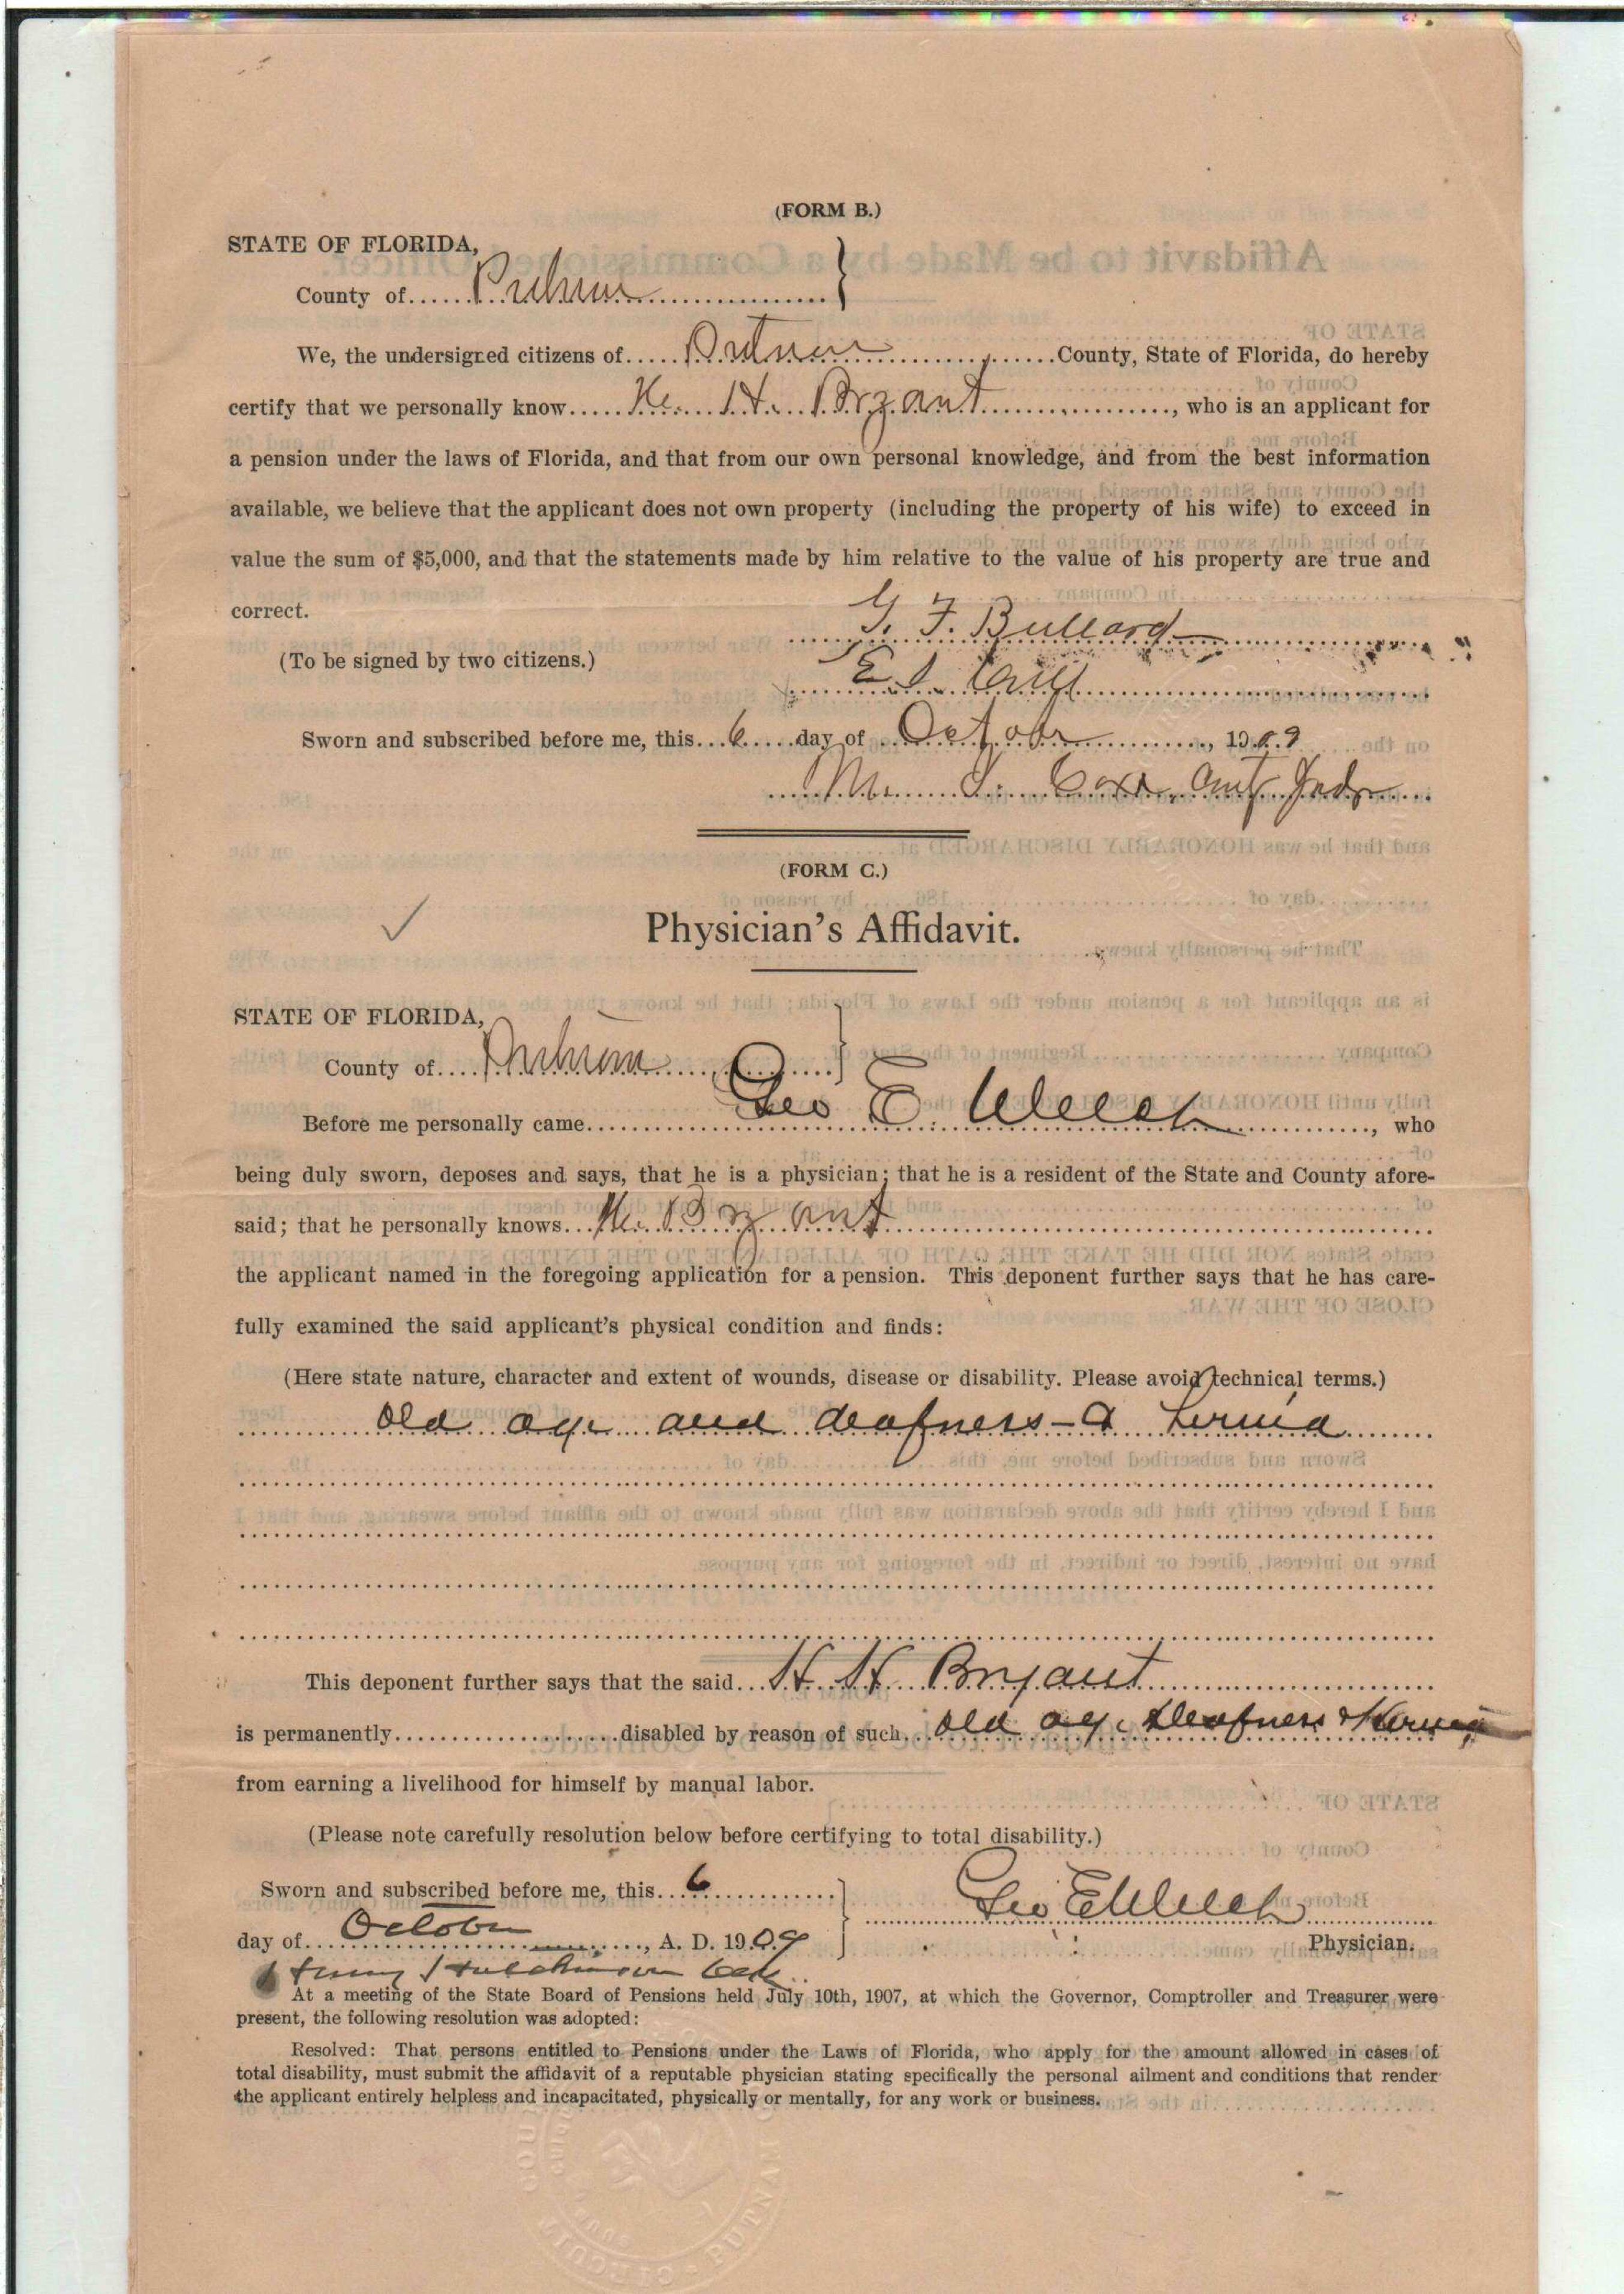 (FORM B.)
STATE OF FLORIDA,
County of Putnam
We, the undersigned citizens of Putnam County, State of Florida, do hereby
certify that we personally know H. H. Bryant, who is an applicant for
a pension under the laws of Florida, and that from our own personal knowledge, and from the best information
available, we believe that the applicant does not own property (including the property of his wife) to exceed in
value the sum of $5,000, and that the statements made by him relative to the value of his property are true and
correct.
G. F. Bullard
(To be signed by two citizens.)
E. S.
Sworn and subscribed before me, this 6 day of October, 1909
M. I. Cox, Cnty Judge
(FORM C.)
Physician's Affidavit.
STATE OF FLORIDA,
County of Putnam
Before me personally came Geo E. Welch, who
being duly sworn, deposes and says, that he is a physician; that he is a resident of the State and County afore-
said; that he personally knows H. Bryant
the applicant named in the foregoing application for a pension. This deponent further says that he has care-
fully examined the said applicant's physical condition and finds:
(Here state nature, character and extent of wounds, disease or disability. Please avoid technical terms.)
old age and deafness - & hernia
This deponent further says that the said H. H. Bryant
is permanently disabled by reason of such old age, Deafness & Hernia
from earning a livelihood for himself by manual labor.
(Please note carefully resolution below before certifying to total disability.)
Sworn and subscribed before me, this 6
Geo E Welch
day of October, A. D. 1909
Physician.
Henry Hutchinson Clk
At a meeting of the State Board of Pensions held July 10th, 1907, at which the Governor, Comptroller and Treasurer were
present, the following resolution was adopted:
Resolved: That persons entitled to Pensions under the Laws of Florida, who apply for the amount allowed in cases of
total disability, must submit the affidavit of a reputable physician stating specifically the personal ailment and conditions that render
the applicant entirely helpless and incapacitated, physically or mentally, for any work or business.